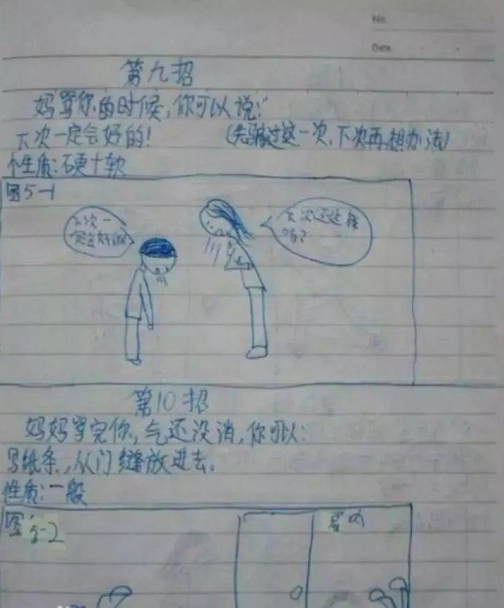 No.
Date
第九招
妈骂你的时候,你可以说:“
下次一定会好的! (先骗过这一次,下次再想办法)
性质:硬+软
图5-1
下次一
定会好的
下次还这样
吗?
第10招
妈妈骂完你,气还没消,你可以:
写纸条,从门缝放进去。
性质:一般
图5-2